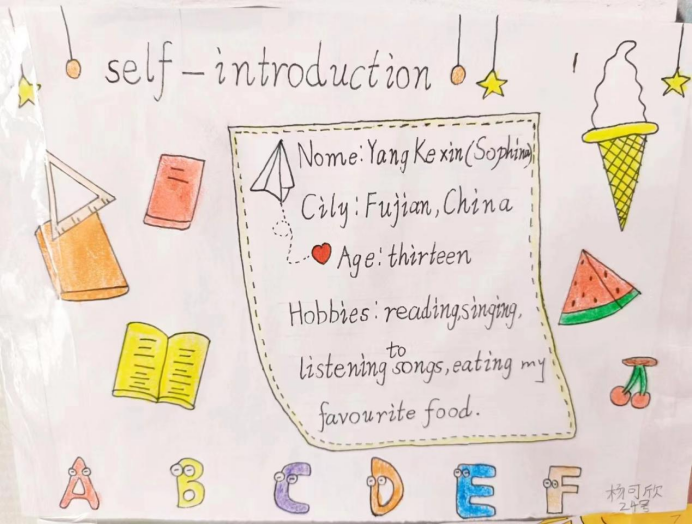 self-introduction
Nome: Yang Kexin (Sophina)
Cily: Fujian, China
Age: thirteen
Hobbies: reading, singing,
listening to songs, eating my
favourite food.
A B C D E F
杨可欣
24号